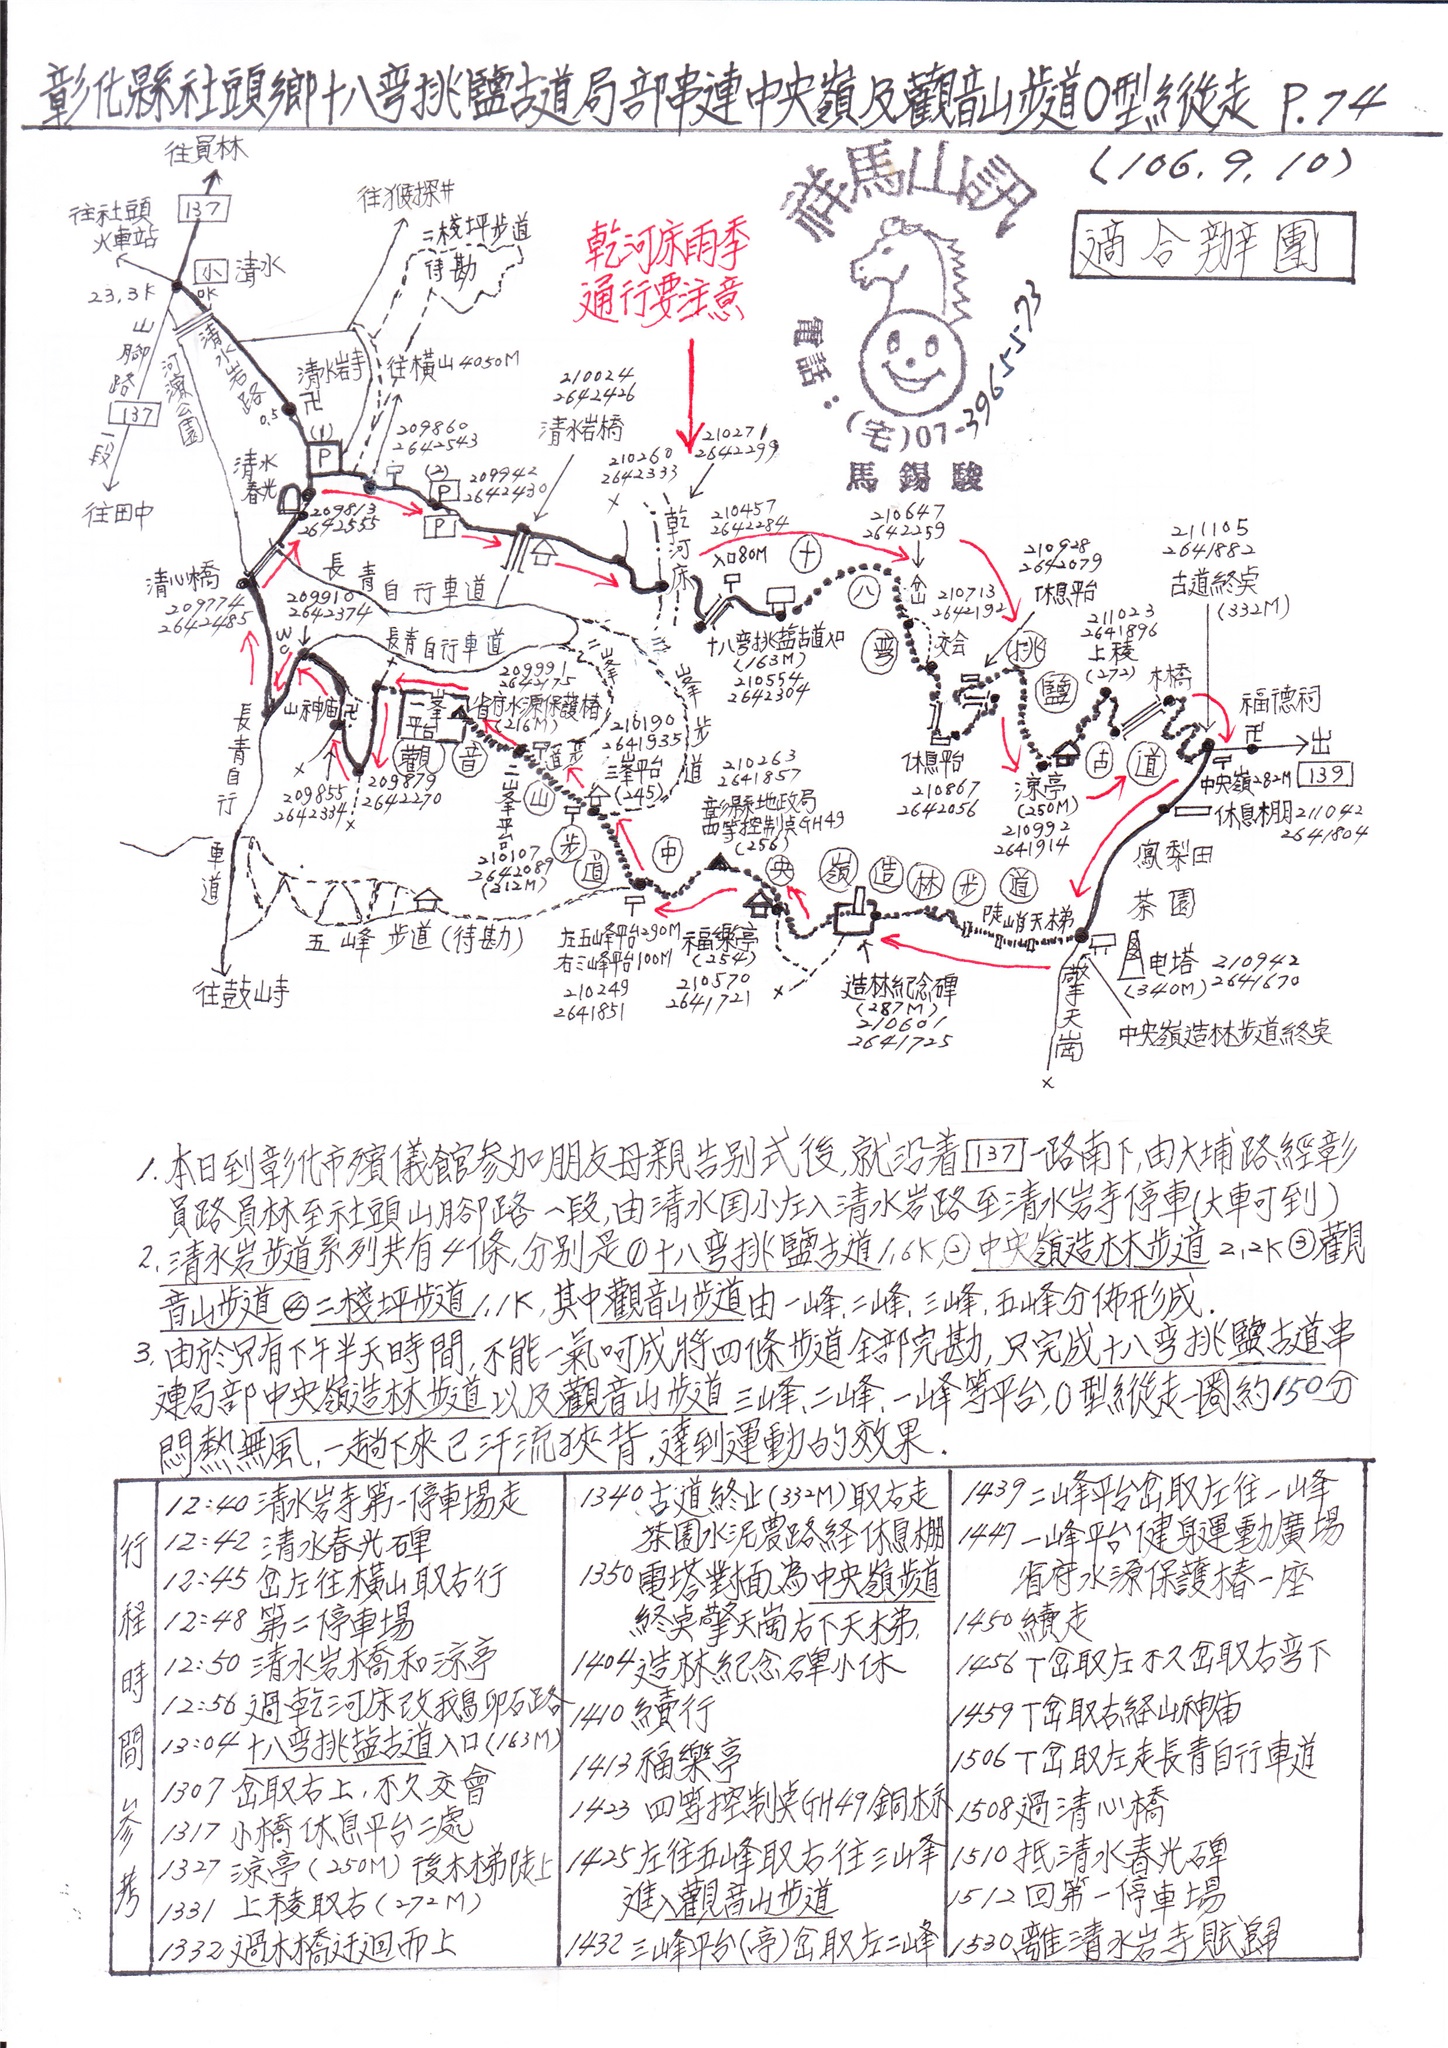 彰化縣社頭鄉十八弯挑鹽古道局部串連中央嶺及觀音山步道O型縱走 P.74
(106.9.10)
適合辦團
祥馬山訊
電話:(宅)07-3965573
馬錫駿
乾河床雨季
通行要注意
往員林
137
往社頭
火車站
小
清水
0K
23.3K
山腳路
137
一段
往田中
河濱公園
清水岩路
0.5
往猴探井
二棧坪步道
待勘
清水岩寺
往橫山4050M
(1)
P
清水
春光
209813
2642555
209860
2642543
(2)
P
P
209942
2642430
210024
2642426
清水岩橋
210260
2642333
210271
2642299
乾河床
210457
2642284
入口80M
十八弯挑盐古道入口
(163M)
210554
2642304
210647
2642259
岔
210713
2642192
交会
210928
2642079
休息平台
休息平台
210867
2642056
211023
2641896
上稜
(272)
木橋
涼亭
(250M)
210992
2641914
211105
2641882
古道終点
(332M)
福德祠
出
139
中央嶺282M
休息棚211042
2641804
鳳梨田
茶園
电塔
(340M)
210942
2641670
中央嶺造林步道終点
擎天崗
陡峭天梯
十八弯挑鹽古道
中央嶺造林步道
造林紀念碑
(287M)
210601
2641725
福樂亭
(254)
210570
2641721
210263
2641857
彰縣地政局
四等控制点GH49
(256)
左五峰平台290M
右三峰平台100M
210249
2641851
210190
2641935
三峰平台
(245)
二峰平台
210107
2642089
(212M)
209991
2642175
省府水源保護椿
(216M)
一峯平台
觀音山步道
三峯步道
清心橋
209774
2642485
長青自行車道
209910
2642374
長青自行車道
山神庙
209855
2642334
209879
2642270
長青自行車道
五峰步道(待勘)
往鼓山寺
1. 本日到彰化市殯儀館參加朋友母親告別式後,就沿着137一路南下,由大埔路經彰
員路員林至社頭山腳路一段,由清水国小左入清水岩路至清水岩寺停車(大車可到)
2. 清水岩步道系列共有4條,分別是①十八弯挑鹽古道1.6K②中央嶺造林步道2.2K③觀
音山步道④二棧坪步道1.1K,其中觀音山步道由一峰、二峰、三峰、五峰分佈形成.
3. 由於只有下午半天時間,不能一氣呵成將四條步道全部完勘,只完成十八弯挑鹽古道串
連局部中央嶺造林步道以及觀音山步道三峰、二峰、一峰等平台,O型縱走一圈約150分
悶熱無風,一趟下來已汗流狹背,達到運動的效果.
行程時間參考
12:40 清水岩寺第一停車場走
12:42 清水春光碑
12:45 岔左往橫山取右行
12:48 第二停車場
12:50 清水岩橋和涼亭
12:56 過乾河床改鵝卵石路
13:04 十八弯挑盐古道入口(163M)
1307 岔取右上,不久交會
1317 小橋休息平台二處
1327 涼亭(250M)後木梯陡上
1331 上稜取右(272M)
1332 過木橋迂迴而上
1340 古道終止(332M)取右走
茶園水泥農路経休息棚
1350 電塔對面為中央嶺步道
終点擎天崗右下天梯.
1404 造林紀念碑小休
1410 續行
1413 福樂亭
1423 四等控制点GH49銅标
1425 左往五峰取右往三峰
進入觀音山步道
1432 三峰平台(亭)岔取左二峰
1439 二峰平台岔取左往一峰
1447 一峰平台健身運動廣場
省府水源保護樁一座
1450 續走
1456 T岔取左不久岔取右弯下
1459 T岔取右経山神庙
1506 T岔取左走長青自行車道
1508 過清心橋
1510 抵清水春光碑
1512 回第一停車場
1530 離清水岩寺賦歸